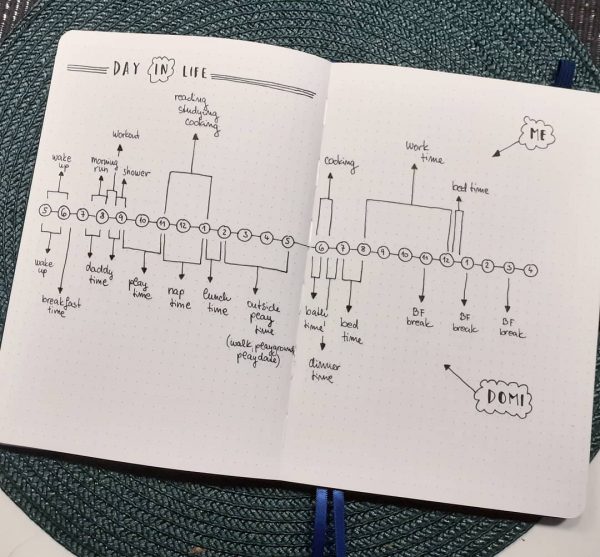 DAY IN LIFE
reading
studying
cooking
workout
wake
up
morning
run
shower
5 6 7 8 9 10 11 12 1 2 3 4 5
wake
up
breakfast
time
daddy
time
play
time
nap
time
lunch
time
outside
play
time
(walk, playground,
playdate)
ME
cooking
work
time
bed time
6 7 8 9 10 11 12 1 2 3 4
bath
time
dinner
time
bed
time
BF
break
BF
break
BF
break
DOMI